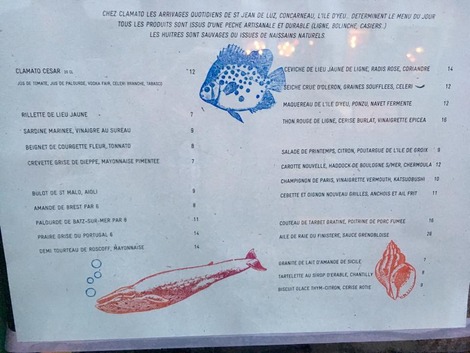 CHEZ CLAMATO LES ARRIVAGES QUOTIDIENS DE ST JEAN DE LUZ, CONCARNEAU, L'ILE D'YEU.. DETERMINENT LE MENU DU JOUR
TOUS LES PRODUITS SONT ISSUS D'UNE PECHE ARTISANALE ET DURABLE (LIGNE, BOLINCHE, CASIERS..)
LES HUITRES SONT SAUVAGES OU ISSUES DE NAISSAINS NATURELS.
CLAMATO CESAR 12
JUS DE TOMATE, JUS DE PALOURDE, VODKA FAIR, CELERI BRANCHE, TABASCO
RILLETTE DE LIEU JAUNE 7
SARDINE MARINEE, VINAIGRE AU SUREAU 9
BEIGNET DE COURGETTE FLEUR, TONNATO 8
CREVETTE GRISE DE DIEPPE, MAYONNAISE PIMENTEE 7
BULOT DE ST MALO, AIOLI 9
AMANDE DE BREST PAR 6 8
PALOURDE DE BATZ-SUR-MER PAR 8 11
PRAIRE GRISE DU PORTUGAL 6 14
DEMI TOURTEAU DE ROSCOFF, MAYONNAISE 14
CEVICHE DE LIEU JAUNE DE LIGNE, RADIS ROSE, CORIANDRE 14
SEICHE CRUE D'OLERON, GRAINES SOUFFLEES, CELERI
MAQUEREAU DE L'ILE D'YEU, PONZU, NAVET FERMENTE 12
THON ROUGE DE LIGNE, CERISE BURLAT, VINAIGRETTE EPICEA 16
SALADE DE PRINTEMPS, CITRON, POUTARGUE DE L'ILE DE GROIX 8
CAROTTE NOUVELLE, HADDOCK DE BOULOGNE S/MER, CHERMOULA 12
CHAMPIGNON DE PARIS, VINAIGRETTE VERMOUTH, KATSUOBUSHI 10
CEBETTE ET OIGNON NOUVEAU GRILLES, ANCHOIS ET AIL FRIT 11
COUTEAU DE TARBES GRATINE, POITRINE DE PORC FUMEE 16
AILE DE RAIE DU FINISTERE, SAUCE GRENOBLOISE
GRANITE DE LAIT D'AMANDE DE SICILE 7
TARTELETTE AU SIROP D'ERABLE, CHANTILLY 8
BISCUIT GLACE THYM-CITRON, CERISE ROTIE 9